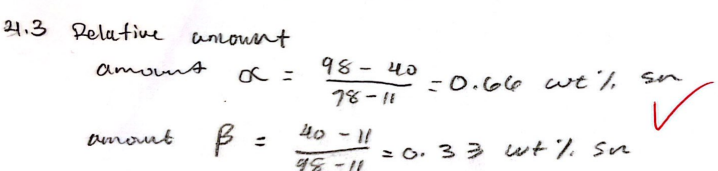 4.3 Relative amount
amount α = 98 - 40 / 98 - 11 = 0.66 wt % sn
amount β = 40 - 11 / 98 - 11 = 0.33 wt % sn